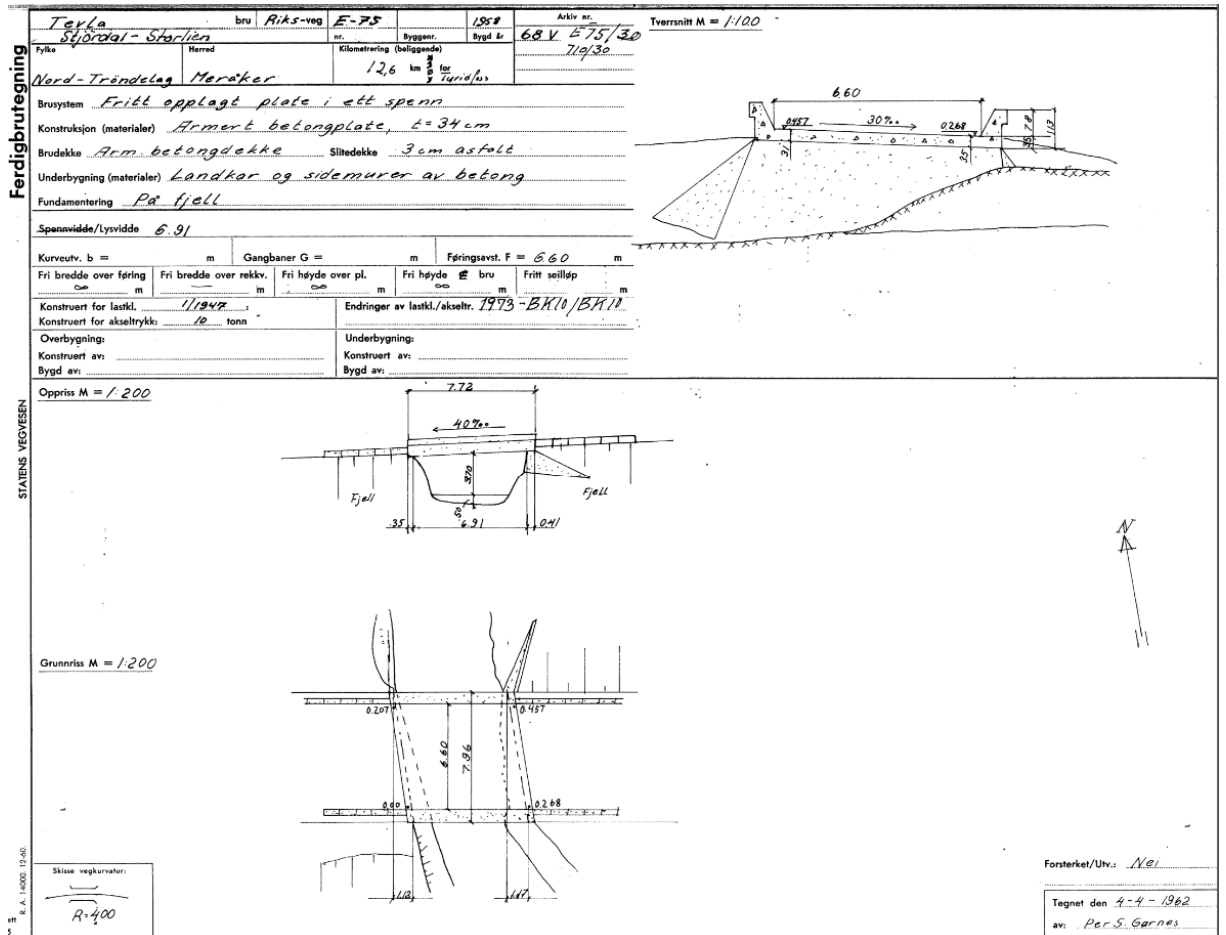 Ferdigbrutegning
STATENS VEGVESEN
R. A. 14000. 12-60.
Tevla bru Riks-veg E-75 1958 Arkiv nr.
Stjørdal - Storlien nr. Byggenr. Bygd år 68 V E75/30
710/30
Fylke Herred Kilometrering (beliggende)
Nord-Tröndelag Meråker 12,6 km for Turifoss
Brusystem Fritt opplagt plate i ett spenn
Konstruksjon (materialer) Armert betongplate, t=34cm
Brudekke Arm. betongdekke Slitedekke 3 cm asfalt
Underbygning (materialer) Landkar og sidemurer av betong
Fundamentering På fjell
Spennvidde/Lysvidde 6.91
Kurveutv. b = m Gangbaner G = m Føringsavst. F = 6.60 m
Fri bredde over føring Fri bredde over rekkv. Fri høyde over pl. Fri høyde bru Fritt seilløp
∞ m — m ∞ m ∞ m m
Konstruert for lastkl. 1/1947 : Endringer av lastkl./akseltr. 1973-BK10/BK10
Konstruert for akseltrykk: 10 tonn
Overbygning: Underbygning:
Konstruert av: Konstruert av:
Bygd av: Bygd av:
Tverrsnitt M = 1:100
6.60
0.457 30‰ 0.268
31 35 35 78 113
Oppriss M = 1:200
7.72
40‰
3.70
Fjell .50 Fjell
.35 6.91 0.41
N
Grunnriss M = 1:200
0.207 0.457
6.60 7.96
0.00 0.268
1.12 1.47
Skisse vegkurvatur:
R=400
Forsterket/Utv.: Nei
Tegnet den 4-4-1962
av: Per S. Garnes